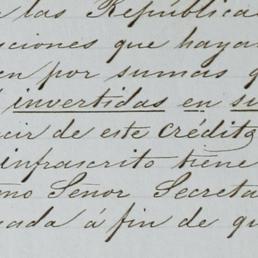 las República
ciones que haya
en por sumas q
invertidas en su
cir de este crédito
infrascrito tiene
mo Señor Secreta
cada á fin de qu